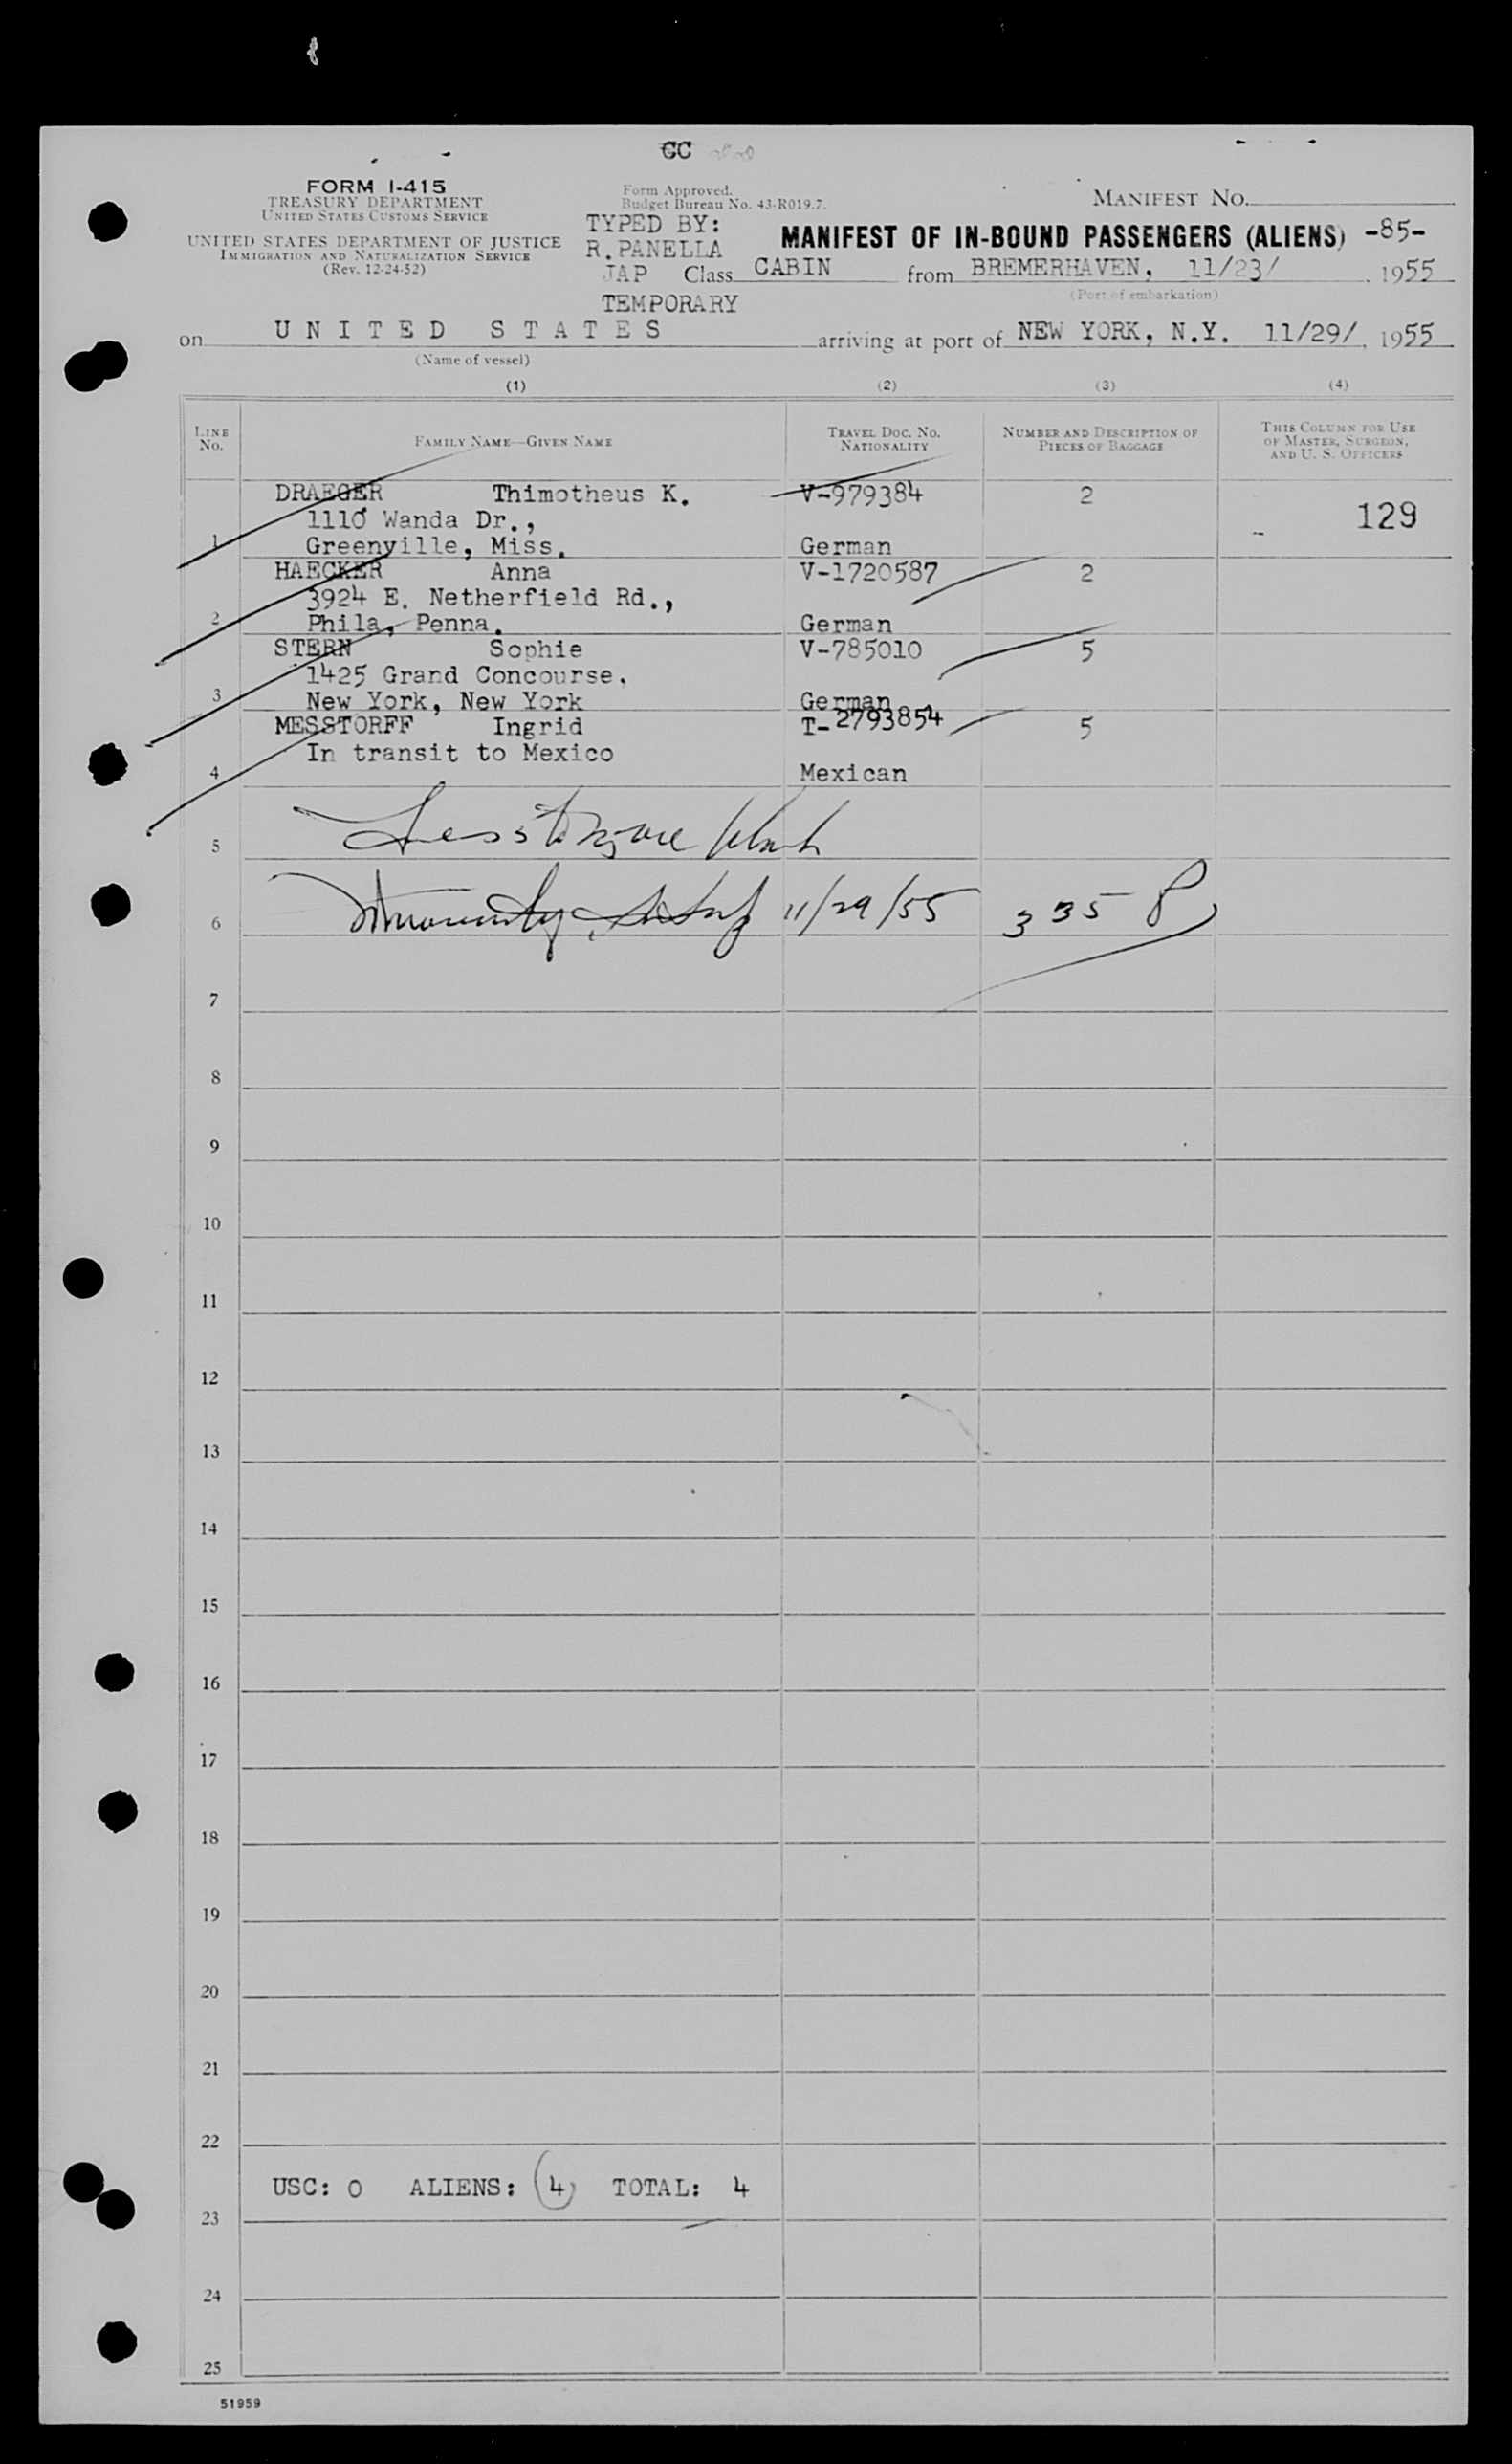 CC
FORM I-415
TREASURY DEPARTMENT
UNITED STATES CUSTOMS SERVICE
UNITED STATES DEPARTMENT OF JUSTICE
IMMIGRATION AND NATURALIZATION SERVICE
(Rev. 12-24-52)
Form Approved.
Budget Bureau No. 43-R019.7.
TYPED BY:
R. PANELLA
JAP
TEMPORARY
MANIFEST NO.
MANIFEST OF IN-BOUND PASSENGERS (ALIENS) -85-
Class CABIN from BREMERHAVEN, 11/23/, 1955
(Port of embarkation)
on UNITED STATES arriving at port of NEW YORK, N.Y. 11/29/, 1955
(Name of vessel)
(1) (2) (3) (4)
LINE NO. FAMILY NAME—GIVEN NAME TRAVEL DOC. NO. NATIONALITY NUMBER AND DESCRIPTION OF PIECES OF BAGGAGE THIS COLUMN FOR USE OF MASTER, SURGEON, AND U. S. OFFICERS
DRAEGER Thimotheus K. V-979384 2
1110 Wanda Dr., 129
1 Greenville, Miss. German
HAECKER Anna V-1720587 2
3924 E. Netherfield Rd.,
2 Phila, Penna. German
STERN Sophie V-785010 5
1425 Grand Concourse.
3 New York, New York German
MESSTORFF Ingrid T-2793854 5
In transit to Mexico
4 Mexican
5
6 11/29/55 335 P
7
8
9
10
11
12
13
14
15
16
17
18
19
20
21
22
USC: 0 ALIENS: 4 TOTAL: 4
23
24
25
51959